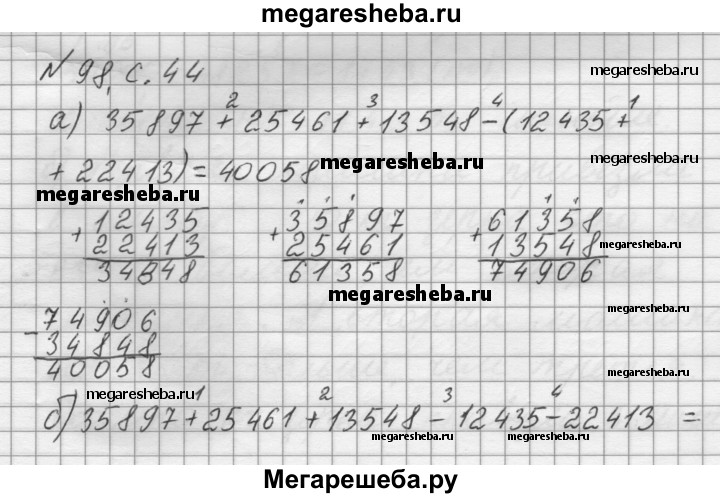 megaresheba.ru
№ 98, с. 44
megaresheba.ru
2 3 4 1
а) 35897 + 25461 + 13548 - (12435 +
+ 22413) = 40058
megaresheba.ru
megaresheba.ru
megaresheba.ru
+ 12435
22413
34848
+ 35897
25461
61358
+ 61358
13548
74906
megaresheba.ru
megaresheba.ru
- 74906
34848
40058
megaresheba.ru
1 2 3 4
б) 35897 + 25461 + 13548 - 12435 - 22413 =
megaresheba.ru
megaresheba.ru
Мегарешеба.ру